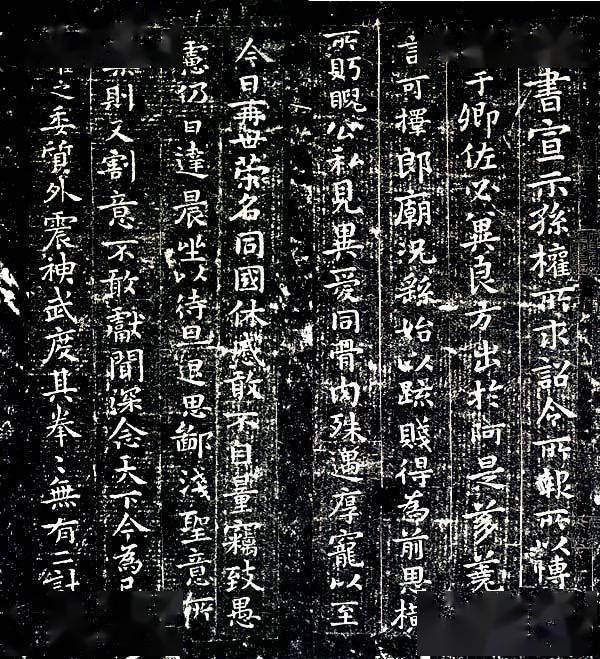 書宣示孫權所求詔令所報所以博
于卿佐必冀良方出於阿是芻蕘
言可擇郎廟況繇始以疏賤得為前思橫
所眄睨公私見異愛同骨肉殊遇厚寵以至
今日再世榮名同國休慼敢不自量竊致愚
慮仍日達晨坐以待旦退思鄙淺聖意所
則又割意不敢獻聞深念天下今為已
之委質外震神武度其拳〻無有二計